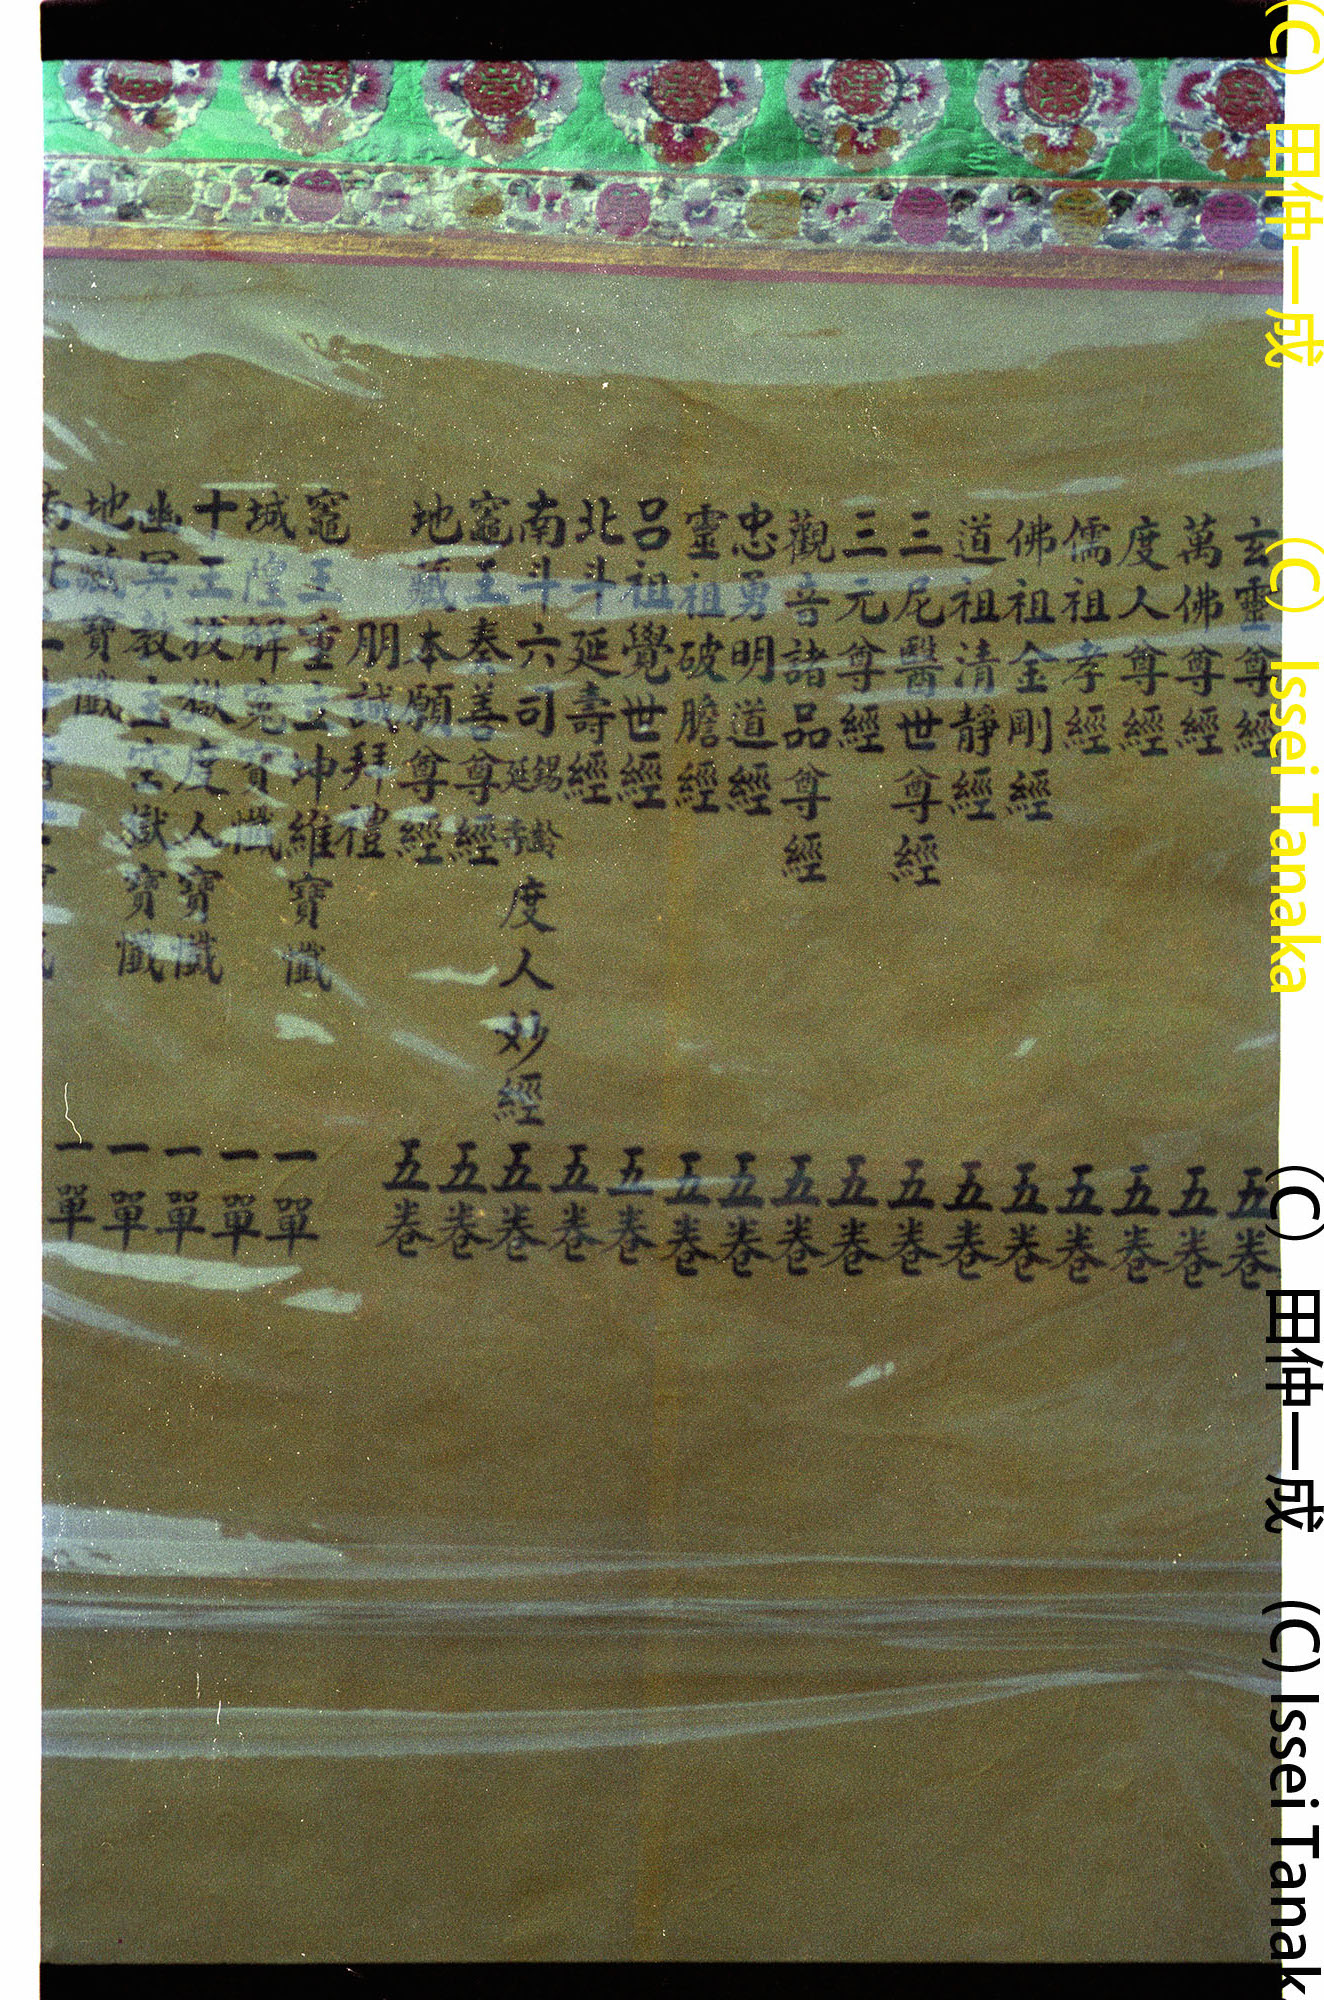 玄靈尊經 五卷
萬佛尊經 五卷
度人尊經 五卷
儒祖孝經 五卷
佛祖金剛經 五卷
道祖清靜經 五卷
三尼醫世尊經 五卷
三元尊經 五卷
觀音諸品尊經 五卷
忠勇明道經 五卷
靈祖破膽經 五卷
呂祖覺世經 五卷
北斗延壽經 五卷
南斗六司延壽錫齡度人妙經 五卷
竈王奏善尊經 五卷
地藏本願尊經 五卷
朋誠拜禮
竈王重主坤維寶懺 一單
城隍解冤寶懺 一單
十王拔獄度人寶懺 一單
幽冥教主空獄寶懺 一單
地藏寶懺 一單
(C) 田仲一成 (C) Issei Tanaka
(C) 田仲一成 (C) Issei Tanak